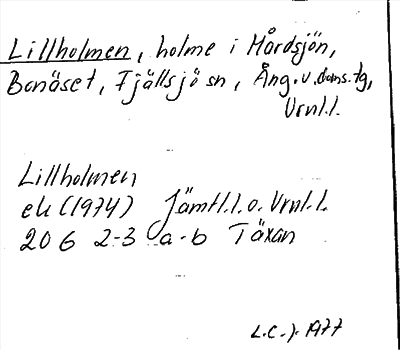 Lillholmen, holme i Mårdsjön,
Bonäset, Fjällsjö sn, Ång.v.doms.tg,
Vrnl.l.
Lillholmen
ek (1974) Jämtl.l. o. Vrnl.l.
20 G 2-3 a-b Täxan
L.C.J. 1977